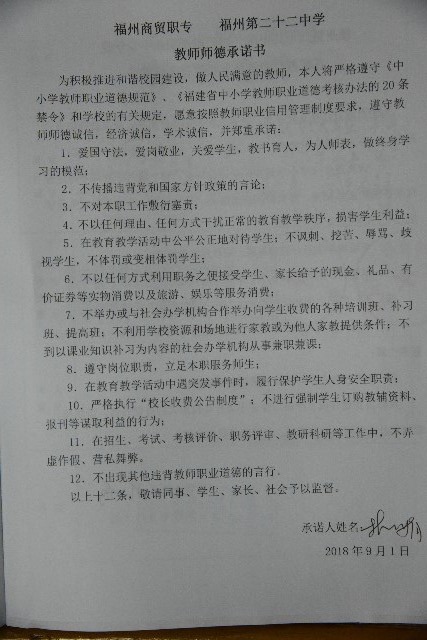 福州商贸职专　　福州第二十二中学
教师师德承诺书
为积极推进和谐校园建设，做人民满意的教师，本人将严格遵守《中
小学教师职业道德规范》、《福建省中小学教师职业道德考核办法的20条
禁令》和学校的有关规定，愿意按照教师职业信用管理制度要求，遵守教
师师德诚信，经济诚信，学术诚信，并郑重承诺：
1．爱国守法，爱岗敬业，关爱学生，教书育人，为人师表，做终身学
习的模范；
2．不传播违背党和国家方针政策的言论；
3．不对本职工作敷衍塞责；
4．不以任何理由、任何方式干扰正常的教育教学秩序，损害学生利益；
5．在教育教学活动中公平公正地对待学生；不讽刺、挖苦、辱骂、歧
视学生，不体罚或变相体罚学生；
6．不以任何方式利用职务之便接受学生、家长给予的现金、礼品、有
价证券等实物消费以及旅游、娱乐等服务消费；
7．不举办或与社会办学机构合作举办向学生收费的各种培训班、补习
班、提高班；不利用学校资源和场地进行家教或为他人家教提供条件；不
到以课业知识补习为内容的社会办学机构从事兼职兼课；
8．遵守岗位职责，立足本职服务师生；
9．在教育教学活动中遇突发事件时，履行保护学生人身安全职责；
10．严格执行“校长收费公告制度”；不进行强制学生订购教辅资料、
报刊等谋取利益的行为；
11．在招生、考试、考核评价、职务评审、教研科研等工作中，不弄
虚作假、营私舞弊。
12．不出现其他违背教师职业道德的言行。
以上十二条，敬请同事、学生、家长、社会予以监督。
承诺人姓名
2018年9月1日